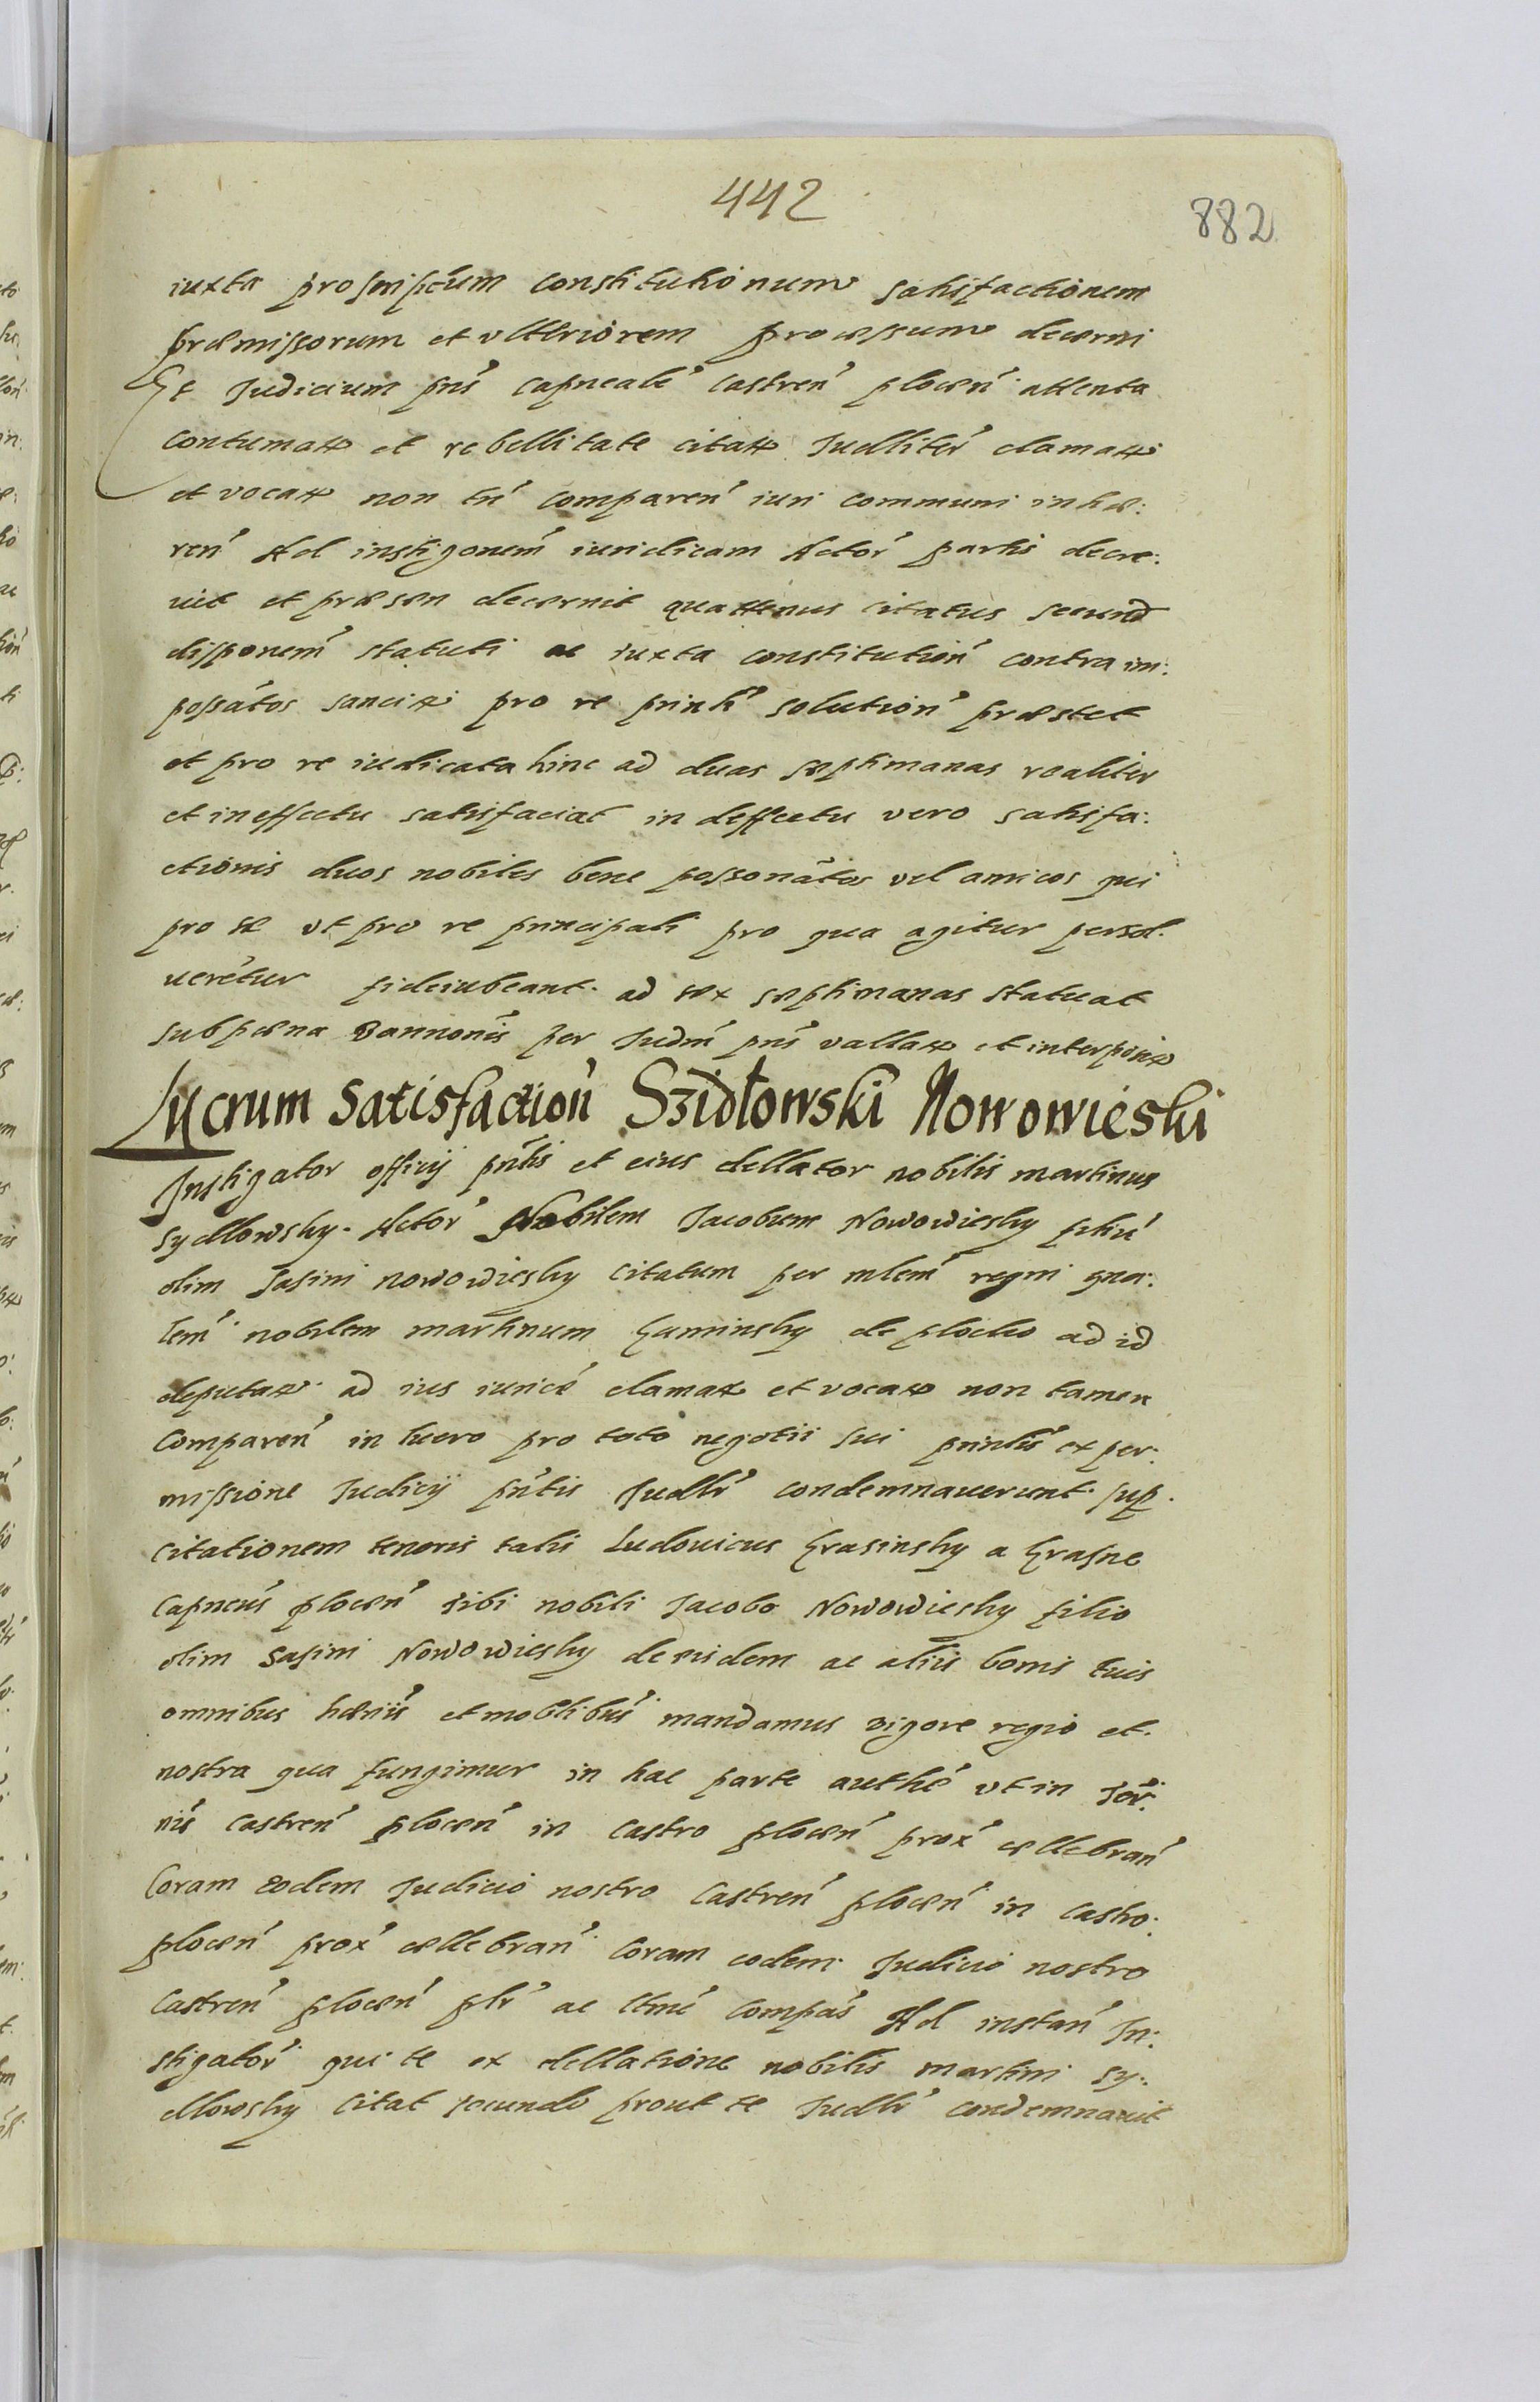 442
882
iuxta proscriptum constitutionum satisfactionem
præmissorum et vltteriorem processum decerni
Et Judicium pns̄ capnealē castren̄ plocen̄ attenta
contumatæ et rebellitate citatæ Judlliter̄ clamatæ
et vocatæ non tn̄ comparen̄ iuri communi inhæ:
ren̄ Ad instigonem̄ iuridicam Actor̄ partis decre:
uit et præsen decernit quattenus citatus secund
disponem̄ statuti ac iuxta constitution̄ contra im:
possātos sancitæ pro re prinlī solution̄ præstet
et pro re iudicata hinc ad duas septimanas realiter
et in effectu satisfaciat in deffectu vero satisfa:
ctionis duos nobiles bene possonātos vel amicos qui
pro se vt pro re principali pro qua agitur persol
ueretur fideiubeant ad sex septimanas statuat
sub pæna Bannonis̄ per Judm̄ pns̄ vallatæ et interpositæ
Lucrum Satisfaction̄ Szidłowski Nowowieski
Instigator officij pn̄tis et eius dellator nobilis martinus
Sydlowsky Actor̄ Nobilem Jacobum Nowowiesky filiū
olim Sasini Nowowiesky citatum per mlem̄ regni gna:
lem̄ nobilem martinum Guminsky de plocko ad id
deputatæ ad ius iuricē clamatæ et vocatæ non tamen
comparen̄ in lucro pro toto negotii sui prinlis̄ ex per:
missione Judicij pn̄tis Judlr̄ condemnauerunt sup
citationem tenoris talis Ludouicus Krasinsky a Krasne
capneus̄ plocen̄ tibi nobili Jacobo Nowowiesky filio
olim Sasini Nowowiesky de eisdem ac aliis bonis tuis
omnibus hæriis̄ et moblibus̄ mandamus vigore regio et
nostra qua fungimur in hac parte authē vt in ter̄:
nis̄ castren̄ plocen̄ in castro plocen̄ prox̄ cellebran̄
Coram eodem Judicio nostro castren̄ plocen̄ in castro
plocen̄ prox̄ cellebran̄ Coram eodem Judicio nostro
Castren̄ plocen̄ plr̄ ac ltmē compās Ad instan̄ In:
stigator̄ qui te ex dellatione nobilis martini Sy:
dlowsky citat secundo prout te Judlr̄ condemnauit